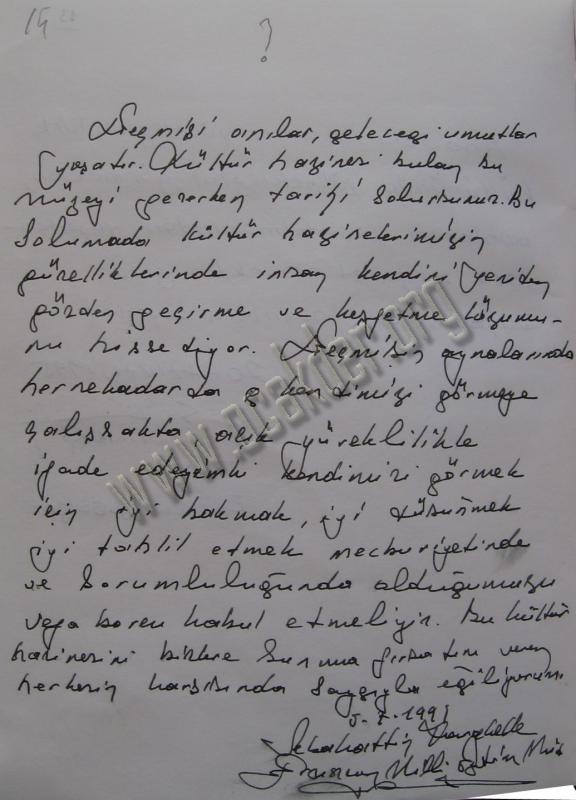 14
?
Geçmişi anılar, geleceği umutlar
yaşatır. Kültür hazinesi bulan bu
müzeyi gezerken tarihi solursunuz. Bu
solumada kültür hazinelerimizin
güzelliklerinde insan kendini yeniden
gözden geçirme ve keşfetme lüzumu-
nu hissediyor. Geçmişin aynalarında
hernekadarda kendimizi görmeye
çalışsakta, açık yüreklilikle
ifade edeyimki kendimizi görmek
için iyi bakmak, iyi düşünmek
iyi tahlil etmek mecburiyetinde
ve sorumluluğunda olduğumuzu
veya borcu kabul etmeliyiz. Bu kültür
hazinesini bizlere sunma fırsatını veren
herkesin karşısında saygıyla eğiliyorum
5.7.1991
Sebahattin
Milli Eğitim Müd
www.ocakder.org